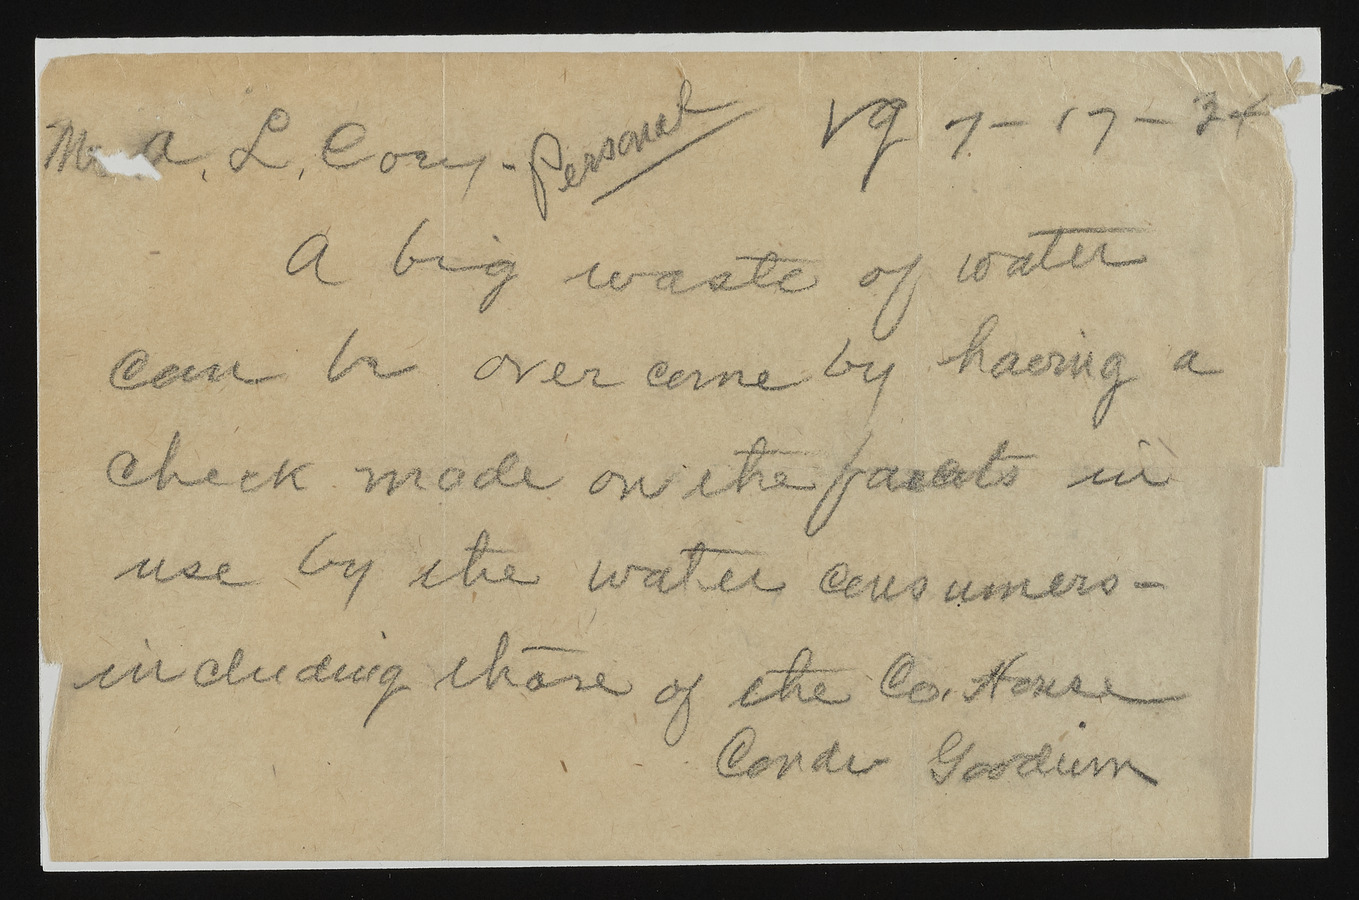 Mr. A. L. Cory - Personal Vg 7-17-34
A big waste of water
can be over come by having a
check made on the faucets in
use by the water consumers -
including those of the Co. House
Goodwin